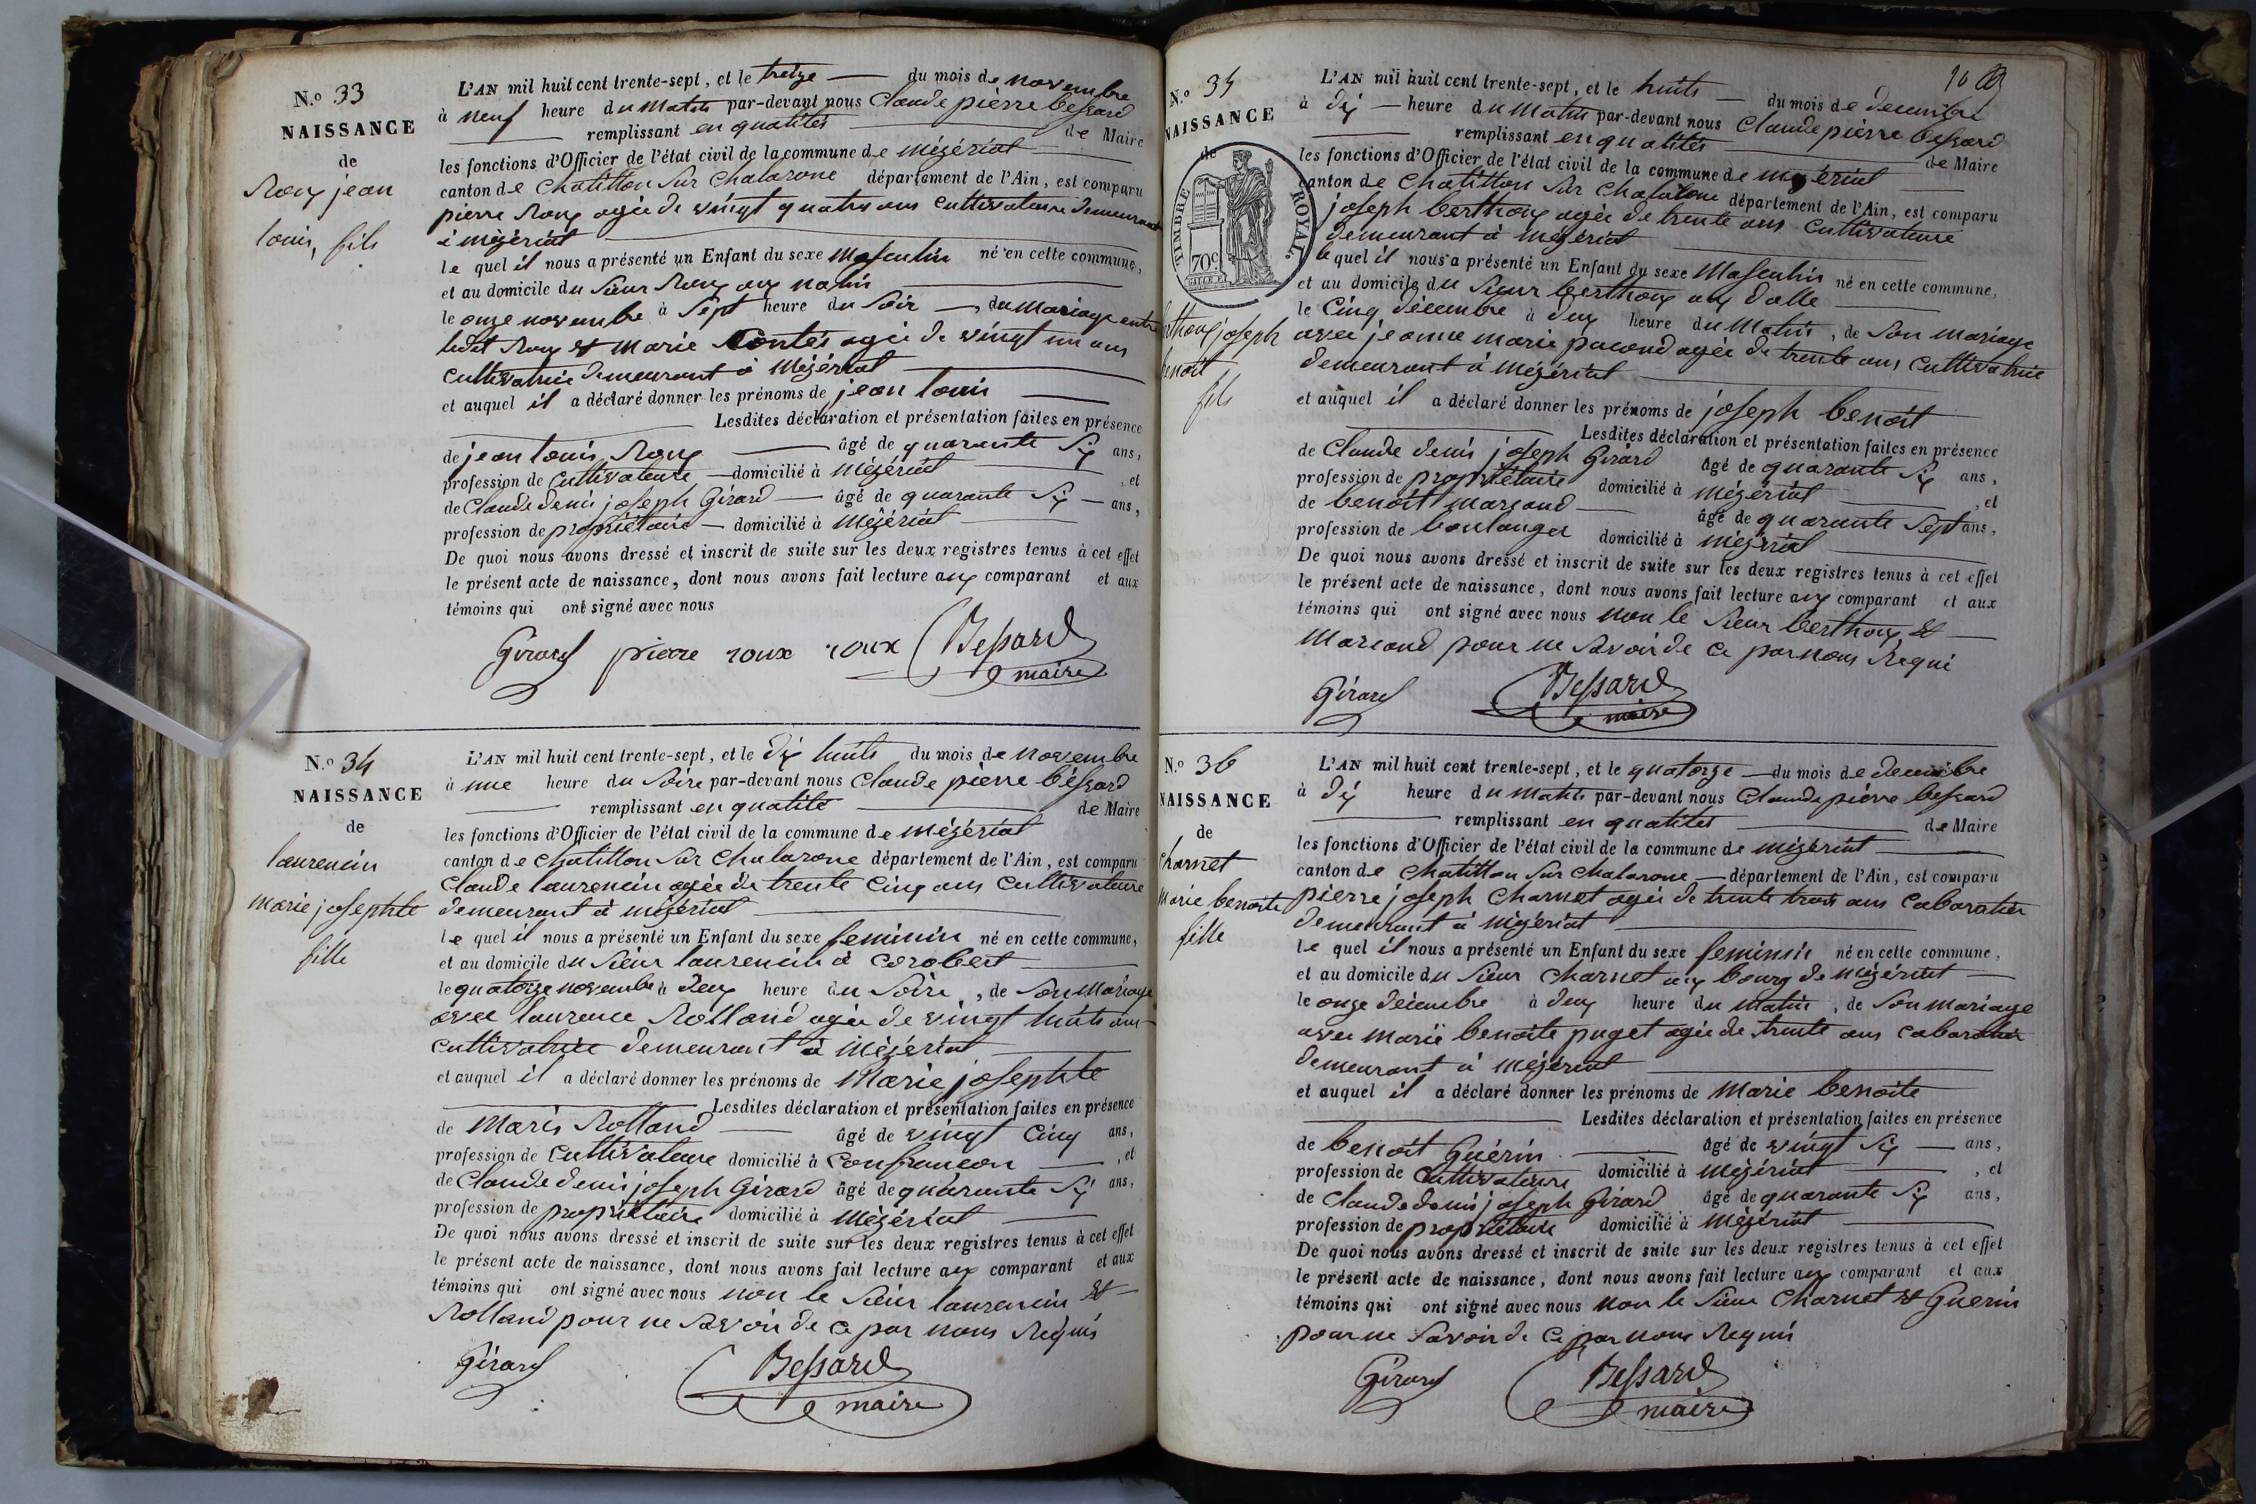 N.o 33
NAISSANCE
de
Roux jean
louis, fils
L'AN mil huit cent trente-sept, et le treize du mois de novembre
à neuf heure du Matin par-devant nous Claude pierre bessard
remplissant en qualités de Maire
les fonctions d'Officier de l'état civil de la commune de mézériat
canton de Chatillon sur Chalarone département de l'Ain, est comparu
pierre Roux agée de vingt quatre ans Cultivateure demeurant
à mézériat
le quel il nous a présenté un Enfant du sexe Masculin né en cette commune,
et au domicile du Sieur Roux aux
le onze novembre à Sept heure du Soir, du Mariage entre
ledit Roux et Marie Contés agée de vingt un ans
Cultivatrice demeurant à Mézériat
et auquel il a déclaré donner les prénoms de jean louis
Lesdites déclaration et présentation faites en présence
de jean louis Roux âgé de quarante Six ans,
profession de Cultivateure domicilié à Mézériat, et
de Claude denis joseph Girard âgé de quarante Six ans,
profession de propriétaire domicilié à Mézériat
De quoi nous avons dressé et inscrit de suite sur les deux registres tenus à cet effet
le présent acte de naissance, dont nous avons fait lecture aux comparant et aux
témoins qui ont signé avec nous
Girard pierre roux roux Bessard
maire
N.o 34
NAISSANCE
de
laurencin
marie josephte
fille
L'AN mil huit cent trente-sept, et le dix huits du mois de novembre
à une heure du Soire par-devant nous Claude pierre bessard
remplissant en qualité de Maire
les fonctions d'Officier de l'état civil de la commune de mézériat
canton de Chatillon sur Chalarone département de l'Ain, est comparu
Claude laurencin agée de trente Cinq ans Cultivateure
demeurant à mézériat
le quel il nous a présenté un Enfant du sexe feminin né en cette commune,
et au domicile du Sieur laurencin à Corobert
le quatorze novembre à deux heure du Soire, de Son Mariage
avec laurence Rolland agée de vingt huits ans
Cultivatrice demeurant à Mézériat
et auquel il a déclaré donner les prénoms de Marie josephte
Lesdites déclaration et présentation faites en présence
de Maris Rolland âgé de vingt Cinq ans,
profession de Cultivateure domicilié à Confrancon, et
de Claude denis joseph Girard âgé de quarante Six ans,
profession de propriétaire domicilié à Mézériat
De quoi nous avons dressé et inscrit de suite sur les deux registres tenus à cet effet
le présent acte de naissance, dont nous avons fait lecture aux comparant et aux
témoins qui ont signé avec nous non le Sieur laurencin et
Rolland pour ne Savoir de ce par nous Requis
Girard Bessard
maire
N.o 35
NAISSANCE
de
TIMBRE ROYAL.
70c
berthoux joseph
benoit
fils
L'AN mil huit cent trente-sept, et le huits du mois de decembre
à dix heure du Matin par-devant nous Claude pierre bessard
remplissant en qualités de Maire
les fonctions d'Officier de l'état civil de la commune de mézériat
canton de Chatillon sur Chalarone département de l'Ain, est comparu
joseph berthoux agée de trente ans Cultivateure
demeurant à Mézériat
le quel il nous a présenté un Enfant du sexe Masculin né en cette commune,
et au domicile du Sieur berthoux aux dalle
le Cinq décembre à deux heure du Matin, de Son mariage
avec jeanne marie pacoud agée de trente ans Cultivatrice
demeurant à mézériat
et auquel il a déclaré donner les prénoms de joseph benoit
Lesdites déclaration et présentation faites en présence
de Claude denis joseph Girard âgé de quarante Six ans,
profession de propriétaire domicilié à Mézériat, et
de benoit marcand âgé de quarante Sept ans,
profession de boulanger domicilié à Mézériat
De quoi nous avons dressé et inscrit de suite sur les deux registres tenus à cet effet
le présent acte de naissance, dont nous avons fait lecture aux comparant et aux
témoins qui ont signé avec nous non le Sieur berthoux et
Marcand pour ne Savoir de ce par nous Requi
Girard Bessard
maire
N.o 36
NAISSANCE
de
Charnet
Marie benoite
fille
L'AN mil huit cent trente-sept, et le quatorze du mois de decembre
à dix heure du Matin par-devant nous Claude pierre bessard
remplissant en qualités de Maire
les fonctions d'Officier de l'état civil de la commune de mézériat
canton de Chatillon sur Chalarone département de l'Ain, est comparu
pierre joseph Charnet agée de trente trois ans Cabaratier
demeurant à mézériat
le quel il nous a présenté un Enfant du sexe feminin né en cette commune,
et au domicile du Sieur Charnet aux bourg de mézériat
le onze décembre à deux heure du Matin, de Son mariage
avec marie benoite puget agée de trente ans
demeurant à mézériat
et auquel il a déclaré donner les prénoms de Marie benoite
Lesdites déclaration et présentation faites en présence
de benoit Guérin âgé de vingt Six ans,
profession de Cultivateure domicilié à Mézériat, et
de Claude denis joseph Girard âgé de quarante Six ans,
profession de propriétaire domicilié à Mézériat
De quoi nous avons dressé et inscrit de suite sur les deux registres tenus à cet effet
le présent acte de naissance, dont nous avons fait lecture aux comparant et aux
témoins qui ont signé avec nous non le Sieur Charnet et Guerin
pour ne Savoir de ce par nous Requis
Girard Bessard
maire